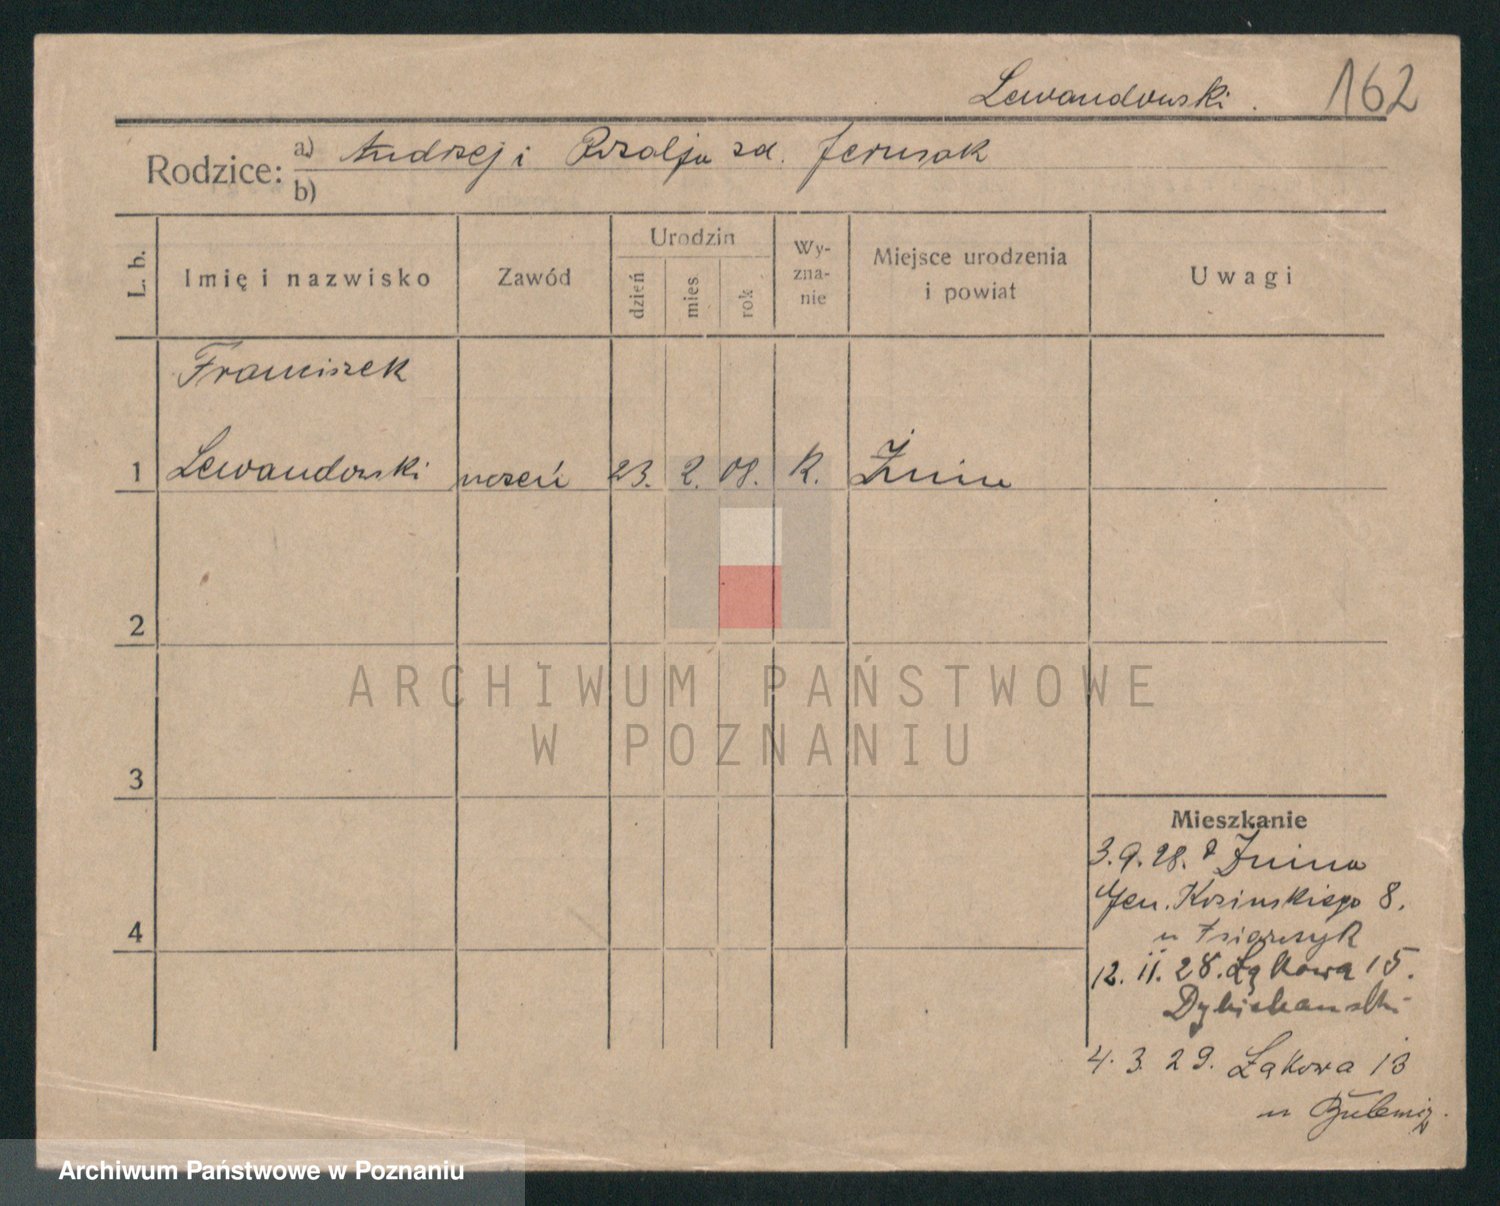 Lewandowski. 162
Rodzice: a) Andrzej i Rozalja zd. Jerusak
b)
L. b.
Imię i nazwisko
Zawód
Urodzin
dzień
mies.
rok
Wy-
zna-
nie
Miejsce urodzenia
i powiat
Uwagi
Franciszek
1 Lewandowski uczeń 23. 2. 08. R. Żnin
2
3
4
ARCHIWUM PAŃSTWOWE
W POZNANIU
Mieszkanie
3.9.28. Żnina
8.
u
12. 11. 28. Łąkowa 15.
4. 3. 29. Łąkowa 13
u
Archiwum Państwowe w Poznaniu